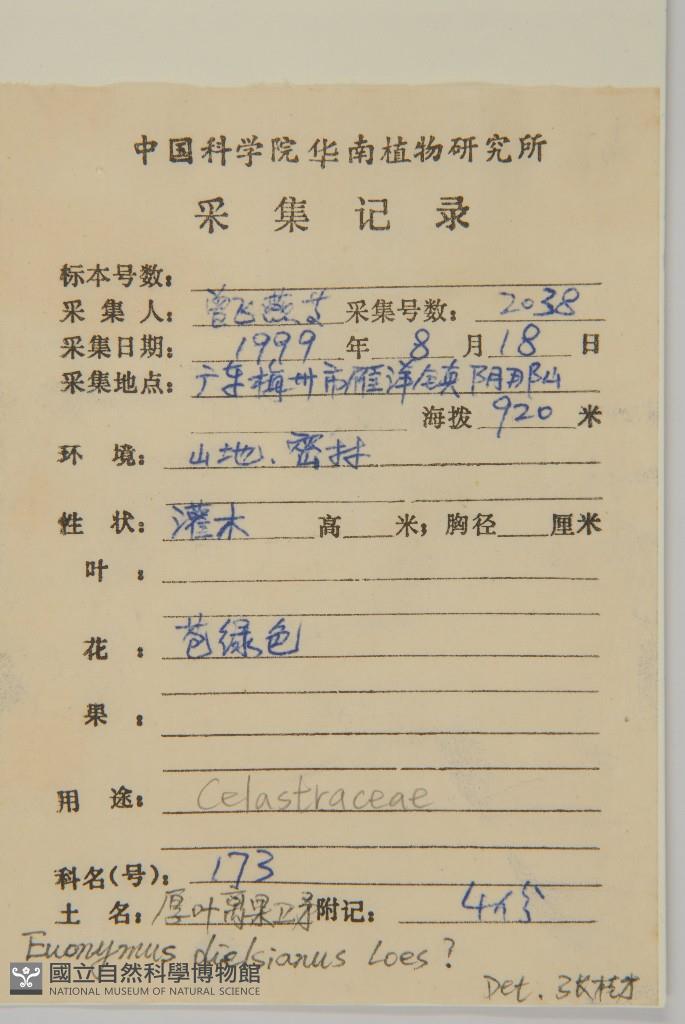 中国科学院华南植物研究所
采集记录
标本号数：
采集人：曾飞燕等 采集号数：2038
采集日期：1999年8月18日
采集地点：广东梅州市雁洋镇阴那山
海拨920米
环境：山地、密林
性状：灌木 高 米；胸径 厘米
叶：
花：苞绿色
果：
用途：Celastraceae
科名(号)：173
土名：厚叶 果卫矛 附记：4份
Euonymus dielsianus Loes?
國立自然科學博物館
NATIONAL MUSEUM OF NATURAL SCIENCE
Det. 张桂才